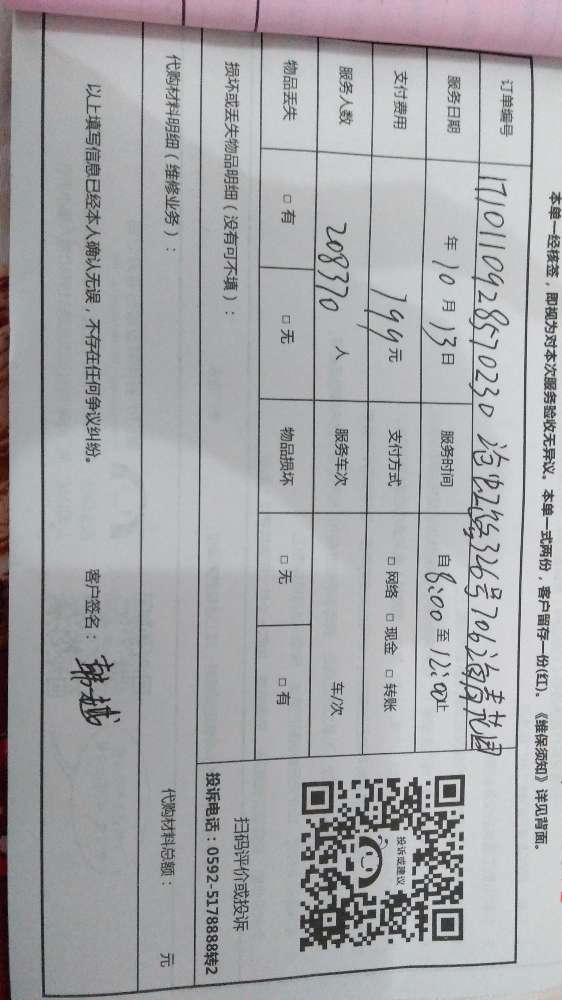 本单一经核签，即视为对本次服务验收无异议。本单一式两份，客户留存一份(红)。《维保须知》详见背面。
订单编号 1710110928570230 326号706
服务日期 年10月13日 服务时间 自8:00至12:00止
支付费用 199元 支付方式 □ 网络 □ 现金 □ 转账
服务人数 208370 人 服务车次 车/次
物品丢失 □ 有 □ 无 物品损坏 □ 无 □ 有
损坏或丢失物品明细（没有可不填）：
代购材料明细（维修业务）： 代购材料总额： 元
以上填写信息已经本人确认无误，不存在任何争议纠纷。 客户签名：
投诉或建议
扫码评价或投诉
投诉电话：0592-5178888转2